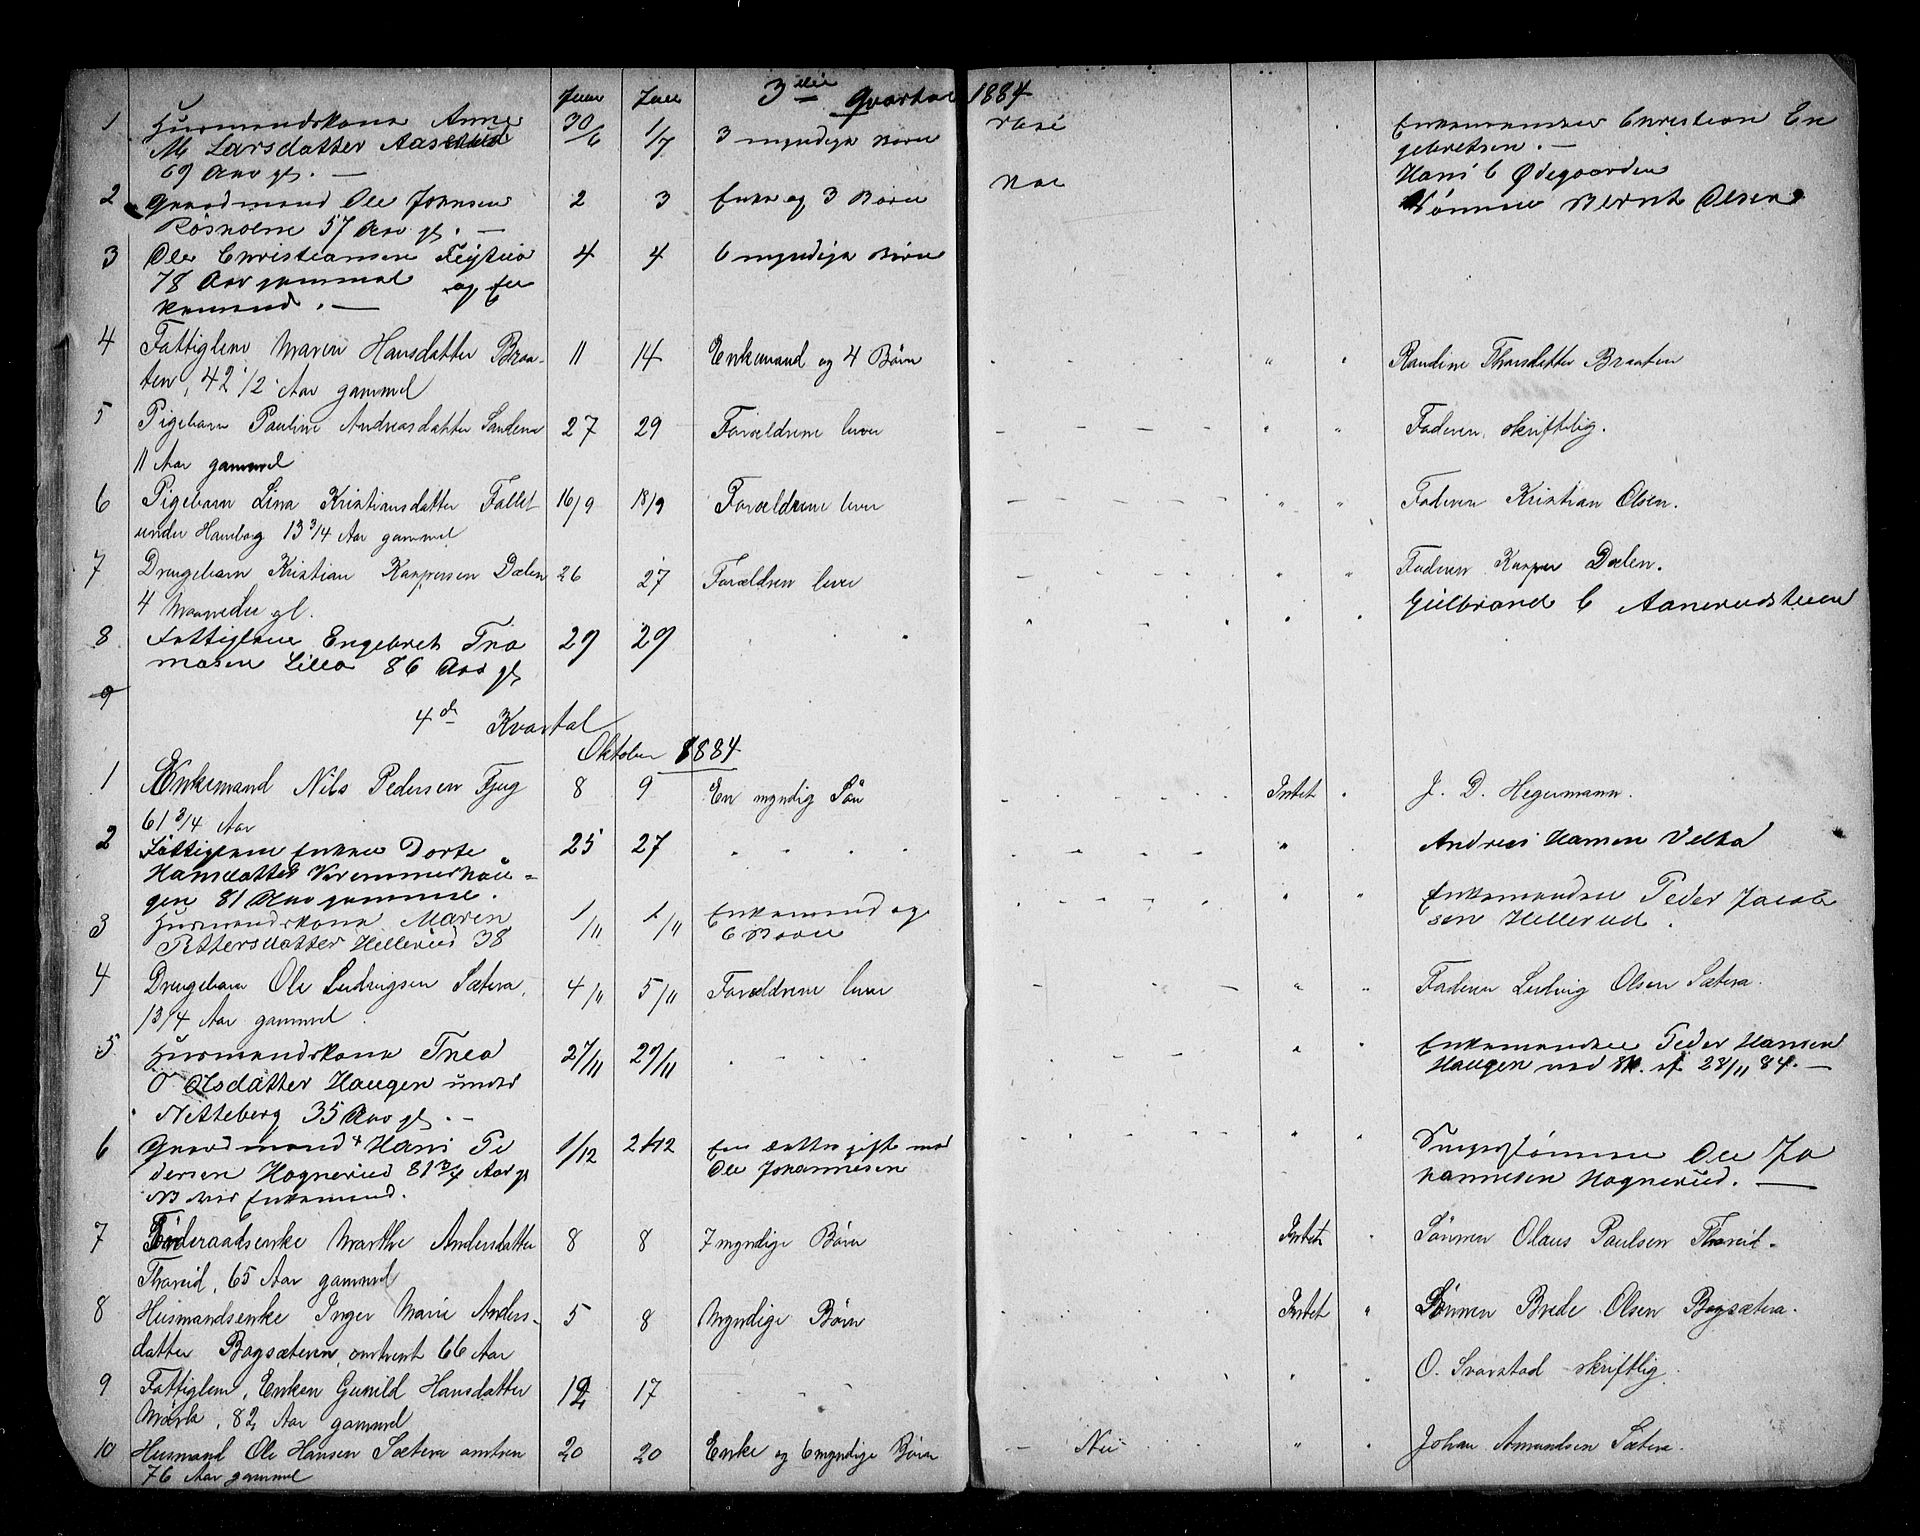 Juni Juli 3die Qvartal 1884
1 Husmandskone Anne 30/6 1/7 3 myndige Børn Enkemanden Christian En
M Larsdatter Aaserud gebretsen. —
69 Aar gl. — Hans C Ødegaarden
2 Gaardmand Ole Johnsen 2 3 Enke og 3 Børn Nei Sønnen Bernt Olsen
Rosholm 57 Aar gl. —
3 Ole Christiansen 4 4 6 myndige Børn
78 Aar gammel og En
kemand. —
4 Fattiglem Maren Hansdatter Braa- 11 14 Enkemand og 4 Børn " " Randine Thorsdatter Braaten
ten, 42 1/2 Aar gammel
5 Pigebarn Pauline Andreasdatter Sandene 27 29 Forældrene lever " " Faderen, skriftlig.
11 Aar gammel
6 Pigebarn Lina Kristiansdatter Fallet 16/9 18/9 Forældrene lever " " Faderen Kristian Olsen.
under Hamborg 13 3/4 Aar gammel
7 Drengebarn Kristian Kaspersen Dælen 26 27 Forældren lever " " Faderen Kasper Dælen.
4 Maaneder gl. Gulbrand C Aanerudstuen
8 Fattiglem Engebret Tho 29 29
masen Lilla 86 Aar gl
9
4de Kvartal
Oktober 1884
1 Enkemand Nils Pedersen Fjug 8 9 En myndig Søn Intet J. D. Hegermann.
61 3/4 Aar
2 Fattiglem Enken Dorte 25 27 " Andreas Hansen Velta
Hansdatter Kremmerhau-
gen 81 Aar gammel.
3 Husmandskone Maren 1/11 1/11 Enkemand og " " Enkemanden Peder Jacob
Pettersdatter Hellerud 38 6 Børn sen Hellerud.
4 Drengebarn Ole Ludvigsen Sætera, 4/11 5/11 Forældrene lever " " Faderen Ludvig Olsen Sætera.
1 3/4 Aar gammel.
5 Husmandskone Thea 27/11 29/11 " " Enkemanden Peder Hansen
O Olsdatter Haugen under Haugen ved Sk. af 28/11 84. —
Netteberg 35 Aar gl. —
6 Gaardmand Hans Pe 1/12 2/12 En datter gift med " " Svigersønnen Ole Jo
dersen Hagnerud 81 3/4 Aar gl Ole Johannesen hannesen Hagnerud. —
NB var Enkemand.
7 Føderaadsenke Marthe Andersdatter 8 8 7 myndige Børn Intet " Sønnen Olaus Paulsen Thoreid.
Thoreid, 65 Aar gammel
8 Husmandsenke Inger Marie Anders- 5 8 Myndige Børn Intet " Sønnen Brede Olsen Bagsætera.
datter Bagsæteren, omtrent 66 Aar
9 Fattiglem, Enken Gunild Hansdatter 12 17 " " O. Svarstad skriftlig.
82 Aar gammel
10 Husmand Ole Hansen Sætera omtren 20 20 Enke og 6 myndige Børn — Nei " " Johan Amundsen Sætera.
76 Aar gammel